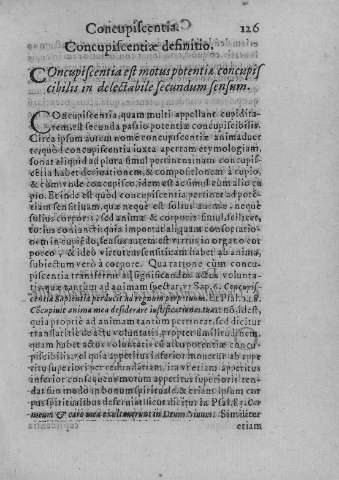 Concupiscentia. 126
Concupiscentiæ definitio.
COncupiscentia est motus potentiæ concupis
cibilis in delectabile secundum sensum.
COncupiscentia, quam multi appellant cupidita-
tem, est secunda passio potentiæ concupiscibilis.
Circa ipsum autem nomē concupiscentiæ animaduer
te, quòd concupiscentia iuxta apertam etymologiam,
sonat aliquid ad plura simul pertinens: nam concupis-
centia habet deriuationem, & compositionem à cupio,
& cum, vnde concupisco, idem est ac simul cum alio cu
pio. Et inde est quod concupiscentia pertinet ad poten-
tiam sensitiuam, quæ neque est solius animæ, neque
solius corporis, sed animæ & corporis simul, scilicet,
totius coniuncti: quia importat aliquam consortatio-
nem in cupiēdo, sensus autem est virtus in organo cor
poreo, & ideò virtutem sensitiuam habet ab anima,
subiectum verò à corpore. Qua ratione cùm concu-
piscentia transfertur ad significandos actus volunta-
tis, quæ tantum ad animam spectat, vt Sap. 6. Concupis-
centia Sapientiæ perducit ad regnum perpetuum. Et Psal. 118.
Cōcupiuit anima mea desiderare iustificationes tuas: nō, idest,
quia propriè ad animam tantum pertineat, sed dicitur
translatitiè de actu voluntatis, propter similitudinem,
quam habet actus voluntatis cū actu potentiæ concu-
piscibilis: vel quia appetitus inferior mouetur ab appe
titu superiori per redundantiam, ita vt etiam appetitus
inferior consequens motum appetitus superioris ten-
dat suo modo in bonum spirituale, & etiam ipsum cor
pus spiritualibus deseruiat: sicut dicitur in Psal. 83. Cor
meum & caro mea exultauerunt in Deum viuum. Similiter
etiam